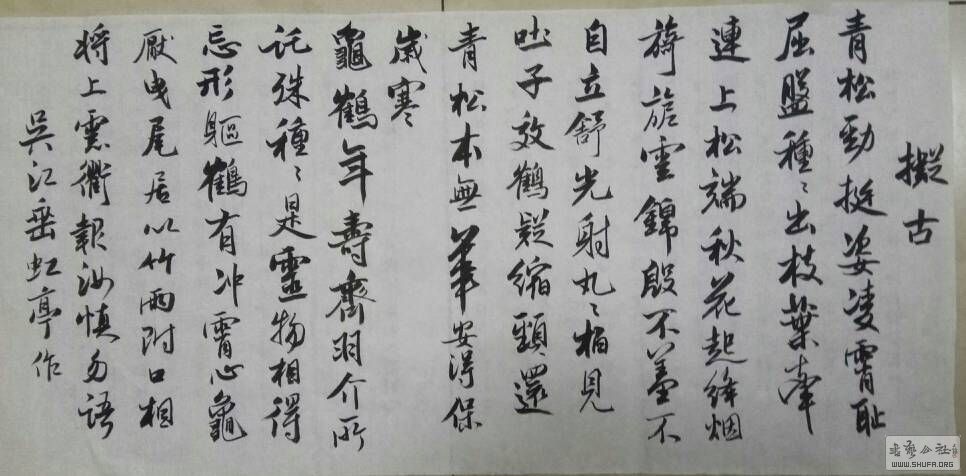 擬古
青松勁挺姿凌霄耻
屈盤種〻出枝葉牽
連上松端秋花起絳烟
旖旎雲錦殷不羞不
自立舒光射丸〻柏見
吐子效鶴疑縮頸還
青松本無華安得保
歲寒
龜鶴年壽齊羽介所
託殊種〻是靈物相得
忘形軀鶴有冲霄心龜
厭曳尾居以竹兩附口相
將上雲衢報汝慎勿語
吳江垂虹亭作
书艺公社
WWW.SHUFA.ORG